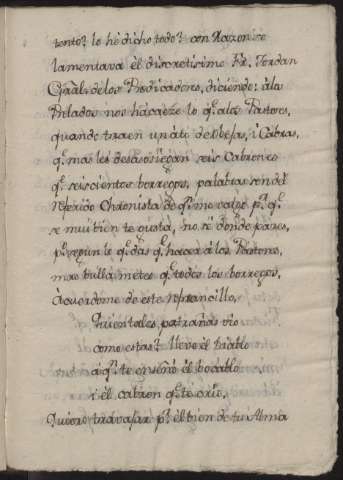 tento? lo hè dicho todo? con Razon se
lamentava èl discretisimo Fr. Jordan
Gral. delos Predicadores, diciendo: àlos
Prelados nos hàcaeze lo q.e alos Pastores,
quando traen un ato de obejas, i Cabras,
q.e mas les desasosiegan seis Cabrones
q.e seiscientos borregos, palabras son del
referido Chronista de q.n me valgo p.a q.e
se mui bien te gusta, no se donde pares,
p.s segun le q.e das q.e hacer à los Pastores,
mas bulla metes q.e todos los borregos,
Acuerdome de este refrancillo,
Quien tales patrañas viò
como estas? lleve èl Diablo
à q.n te enseñò el bocablo
i èl cabron q.e te criò,
Quiero travajar p.r èl bien de tu Alma